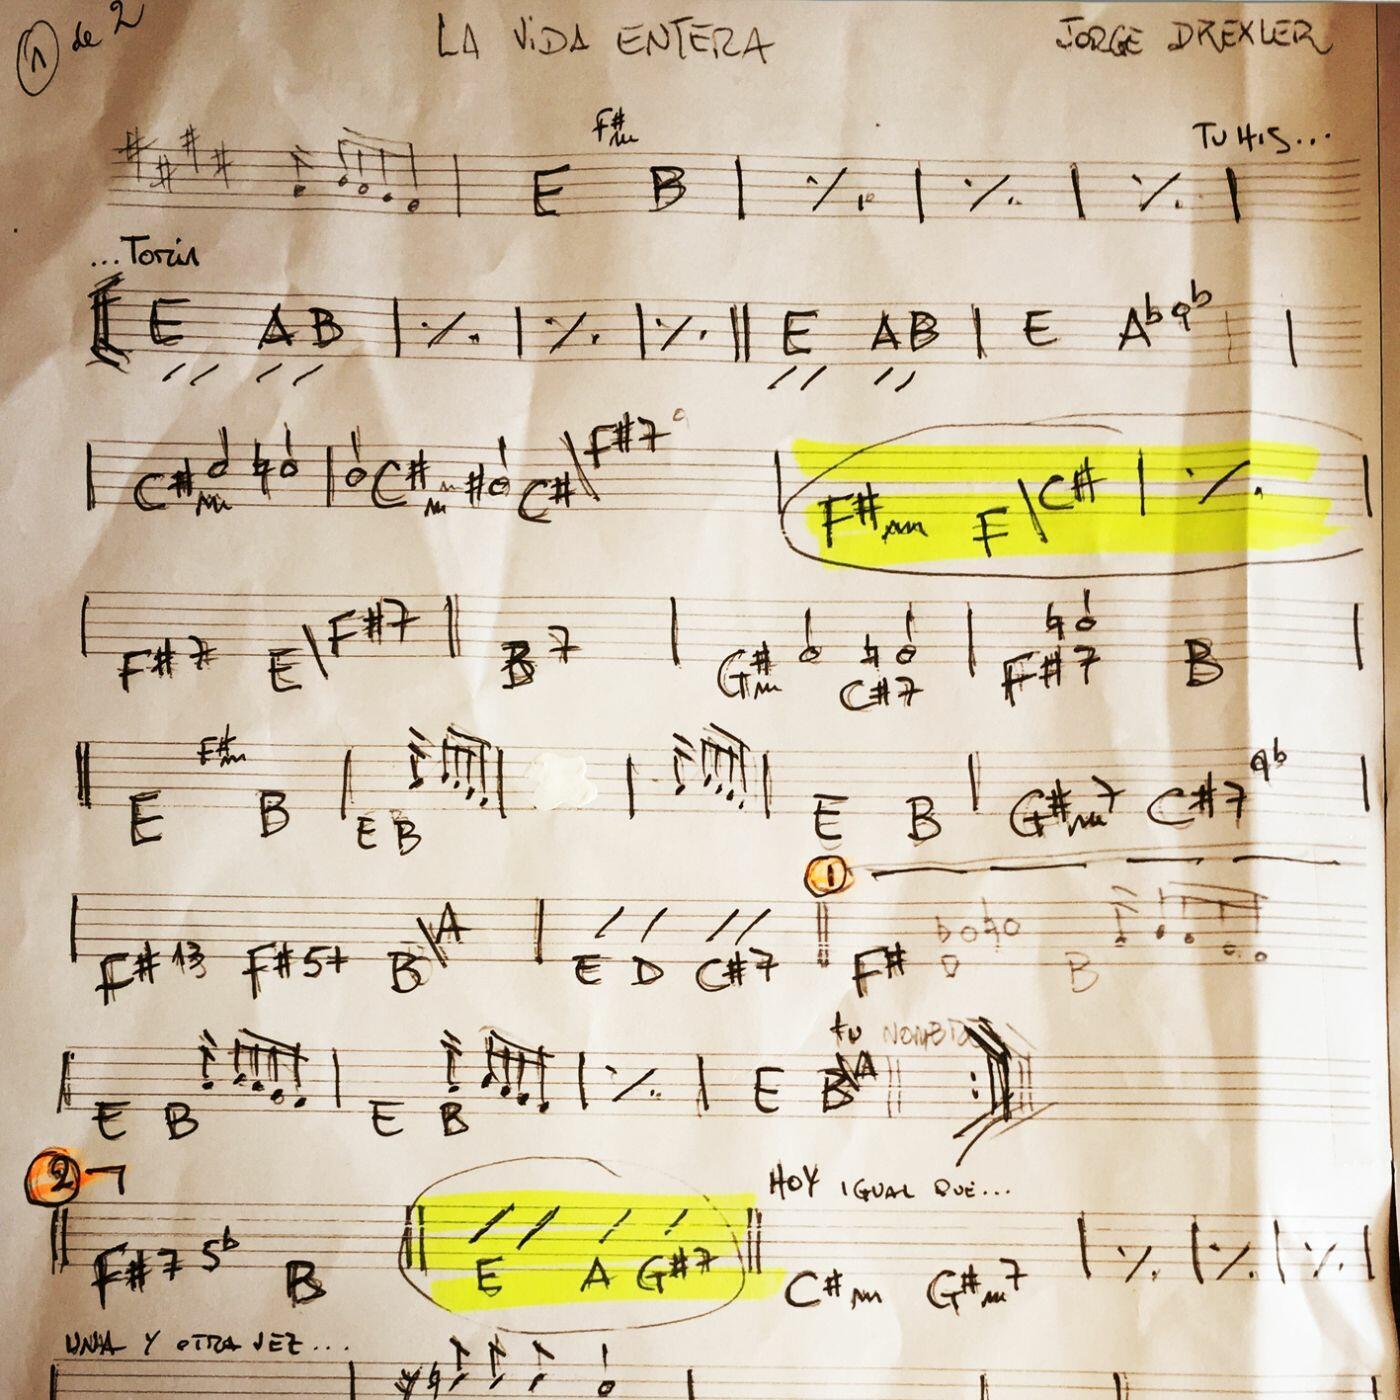 1 de 2
LA VIDA ENTERA
JORGE DREXLER
F#m
TU HIS...
E B
...Toria
E A B E A B E Ab 9b
C#m C#m C# F#7
F#m E C#
F#7 E F#7 B7 G#m C#7 F#7 B
F#m
E B E B E B G#m7 C#7 9b
1
F#13 F#5+ B A E D C#7 F# D B
tu NOMBRE
E B E B E B A
2
HOY IGUAL QUE...
F#7 5b B E A G#7 C#m G#m7
UNA Y OTRA VEZ...